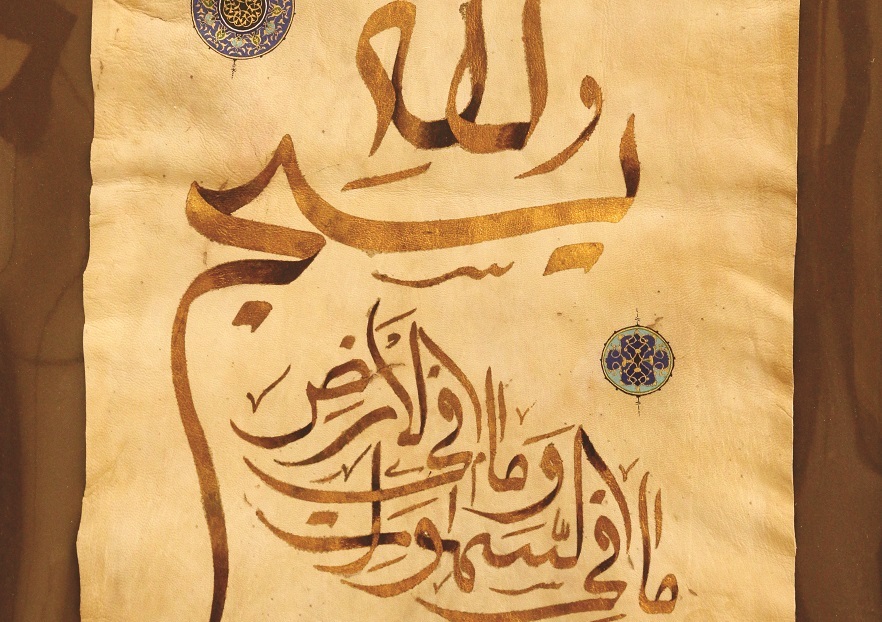 ولله
يسجد
ما في السموات
وما في الأرض